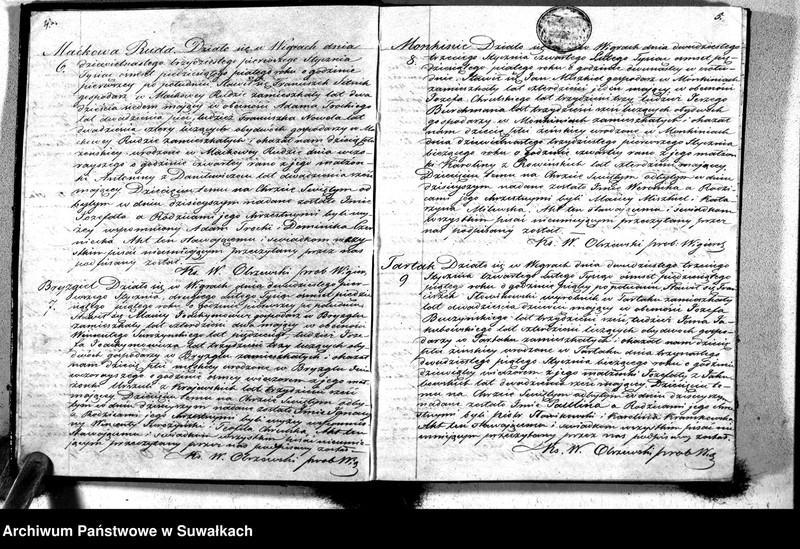 4.
Maćkowa Ruda. Działo się w Wigrach dnia
6. dziewiętnastego trzydziestego pierwszego Stycznia
Tysiąc ośmset piędziesiątego piątego roku o godzinie
pierwszej po południu Stawił się Franciszek
gospodarz w Maćkowej Rudzie zamieszkały lat dwa
dzieścia siedem mający w obecności Adama Trockiego
lat dwadzieścia pięć, tudzież Franciszka Nowela lat
dwadzieścia cztery liczących obydwóch gospodarzy w Ma
ćkowej Rudzie zamieszkałych i okazał nam dziecię płci
żeńskiej urodzone w Maćkowej Rudzie dnia wczo
rajszego o godzinie czwartej rano z jego małżon
ki Antoniny z lat dwadzieścia sześć
mającej Dziecięciu temu na Chrzcie Świętym od
bytym w dniu dzisiejszym nadane zostało Imie
Jozefata a Rodzicami jego chrzestnymi byli wy
żej wspomniony Adam Trocki i Dominika
Akt ten stawającemu i świadkom wszy
stkim pisać nieumiejącym przeczytany przez nas
podpisany został.
Ks. W. Obrzewski prob. Wigier.
Bryzgiel Działo się w Wigrach dnia dwudziestego
7. pierwszego Stycznia, drugiego Lutego Tysiąc ośmset piędzie
siątego piątego roku o godzinie pierwszej po południu
Stawił się Maciej Joachymowicz gospodarz w Bryzglu
zamieszkały lat czterdzieści dwa mający w obecności
Wincentego lat piędziesiąt tudzież Józe
fa Joachymowicza lat trzydzieści trzy liczących oby
dwóch gospodarzy w Bryzglu zamieszkałych i okazał
nam dziecię płci męzkiej urodzone w Bryzglu dniu
wczorajszego o godzinie osmej wieczorem z jego mał
żonki z Krajewskich lat trzydzieści sześć
mającej Dziecięciu temu na Chrzcie Świętym odby
tym w dniu dzisiejszym nadane zostało Imie Ignacy
a Rodzicami jego chrzestnymi byli wyżej wspomnio
ny Wincenty i Teofila Akt ten
stawającemu i świadkom wszystkim pisać nieumie
jącym przeczytany przez nas podpisany został.
Ks. W. Obrzewski prob. Wig
5.
Monkinie Działo się w Wigrach dnia dwudziestego
8 trzeciego Stycznia czwartego Lutego Tysiąc ośmset pię
dziesiątego piątego roku o godzinie dwunastej w połu
dnie Stawił się Jan Miszkiel gospodarz w Monkiniach
zamieszkały lat czterdzieści jeden mający w obecności
Jozefa lat trzydzieści trzy tudzież Jerzego
Brachmana lat trzydzieści sześć liczących obydwóch
gospodarzy w Monkiniach zamieszkałych i okazał
nam dziecię płci żeńskiej urodzone w Monkiniach
dnia dziewiętnastego trzydziestego pierwszego Stycznia
bieżącego roku o godzinie czwartej rano z jego małżon
ki Karoliny z lat czterdzieści mającej
Dziecięciu temu na Chrzcie Świętym odbytym w dniu
dzisiejszym nadane zostało Imie Weronika a Rodzi
cami jego chrzestnymi byli Maciej Miszkiel i Kata
rzyna Milewska. Akt ten stawającemu i świadkom
wszystkim pisać nieumiejącym przeczytany przez
nas podpisany został.
Ks. W. Obrzewski prob. Wigiers
Tartak Działo się w Wigrach dnia dwudziestego trzeciego
9 Stycznia czwartego Lutego Tysiąc ośmset piędziesiątego
piątego roku o godzinie piątej po południu Stawił się Fran
ciszek Stankiewicz wyrobnik w Tartaku zamieszkały
lat dwadzieścia dziewięć mający w obecności Jozefa
Buczyńskiego lat trzydzieści sześć, tudzież Jana Ja
kubowskiego lat czterdzieści liczących obydwóch gospo
darzy w Tartaku zamieszkałych i okazał nam dziecię
płci żeńskiej urodzone w Tartaku dnia trzynastego
dwudziestego piątego Stycznia bieżącego roku o godzinie
dziewiątej wieczorem z jego małżonki Jozefaty z Jaku
bowskich lat dwadzieścia sześć mającej. Dziecięciu te
mu na Chrzcie Świętym odbytym w dniu dzisiejszym
nadane zostało Imie Paulina a Rodzicami jego chrze
stnymi byli Piotr Stankiewicz i Karolina
Akt ten stawającemu i świadkom wszystkim pisać nieu
miejącym przeczytany przez nas podpisany został.
Ks. W. Obrzewski prob. Wig
Archiwum Państwowe w Suwałkach